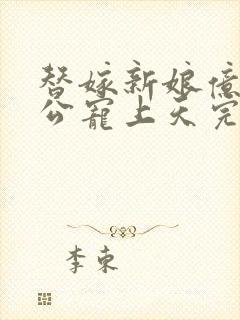 替嫁新娘億
公寵上天完
李東